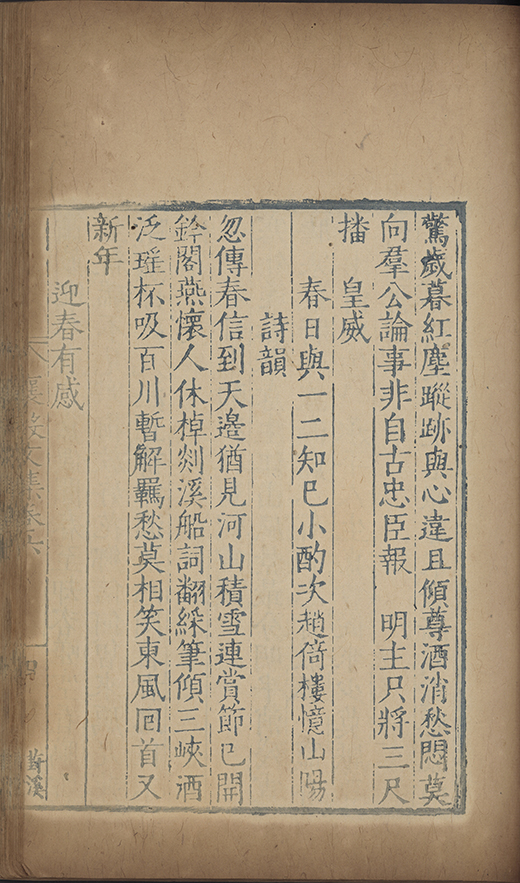 驚歲暮紅塵蹤跡與心違且傾尊酒消愁悶莫
向羣公論事非自古忠臣報　明主只將三尺
播　皇威
春日與一二知巳小酌次趙倚樓憶山陽
詩韻
忽傳春信到天邉猶見河山積雪連賞節已開
鈴閣燕懷人休棹剡溪船詞翻綵筆傾三峽酒
泛瑶杯吸百川暫解羈愁莫相笑東風回首又
新年
迎春有感
襄毅文集卷六